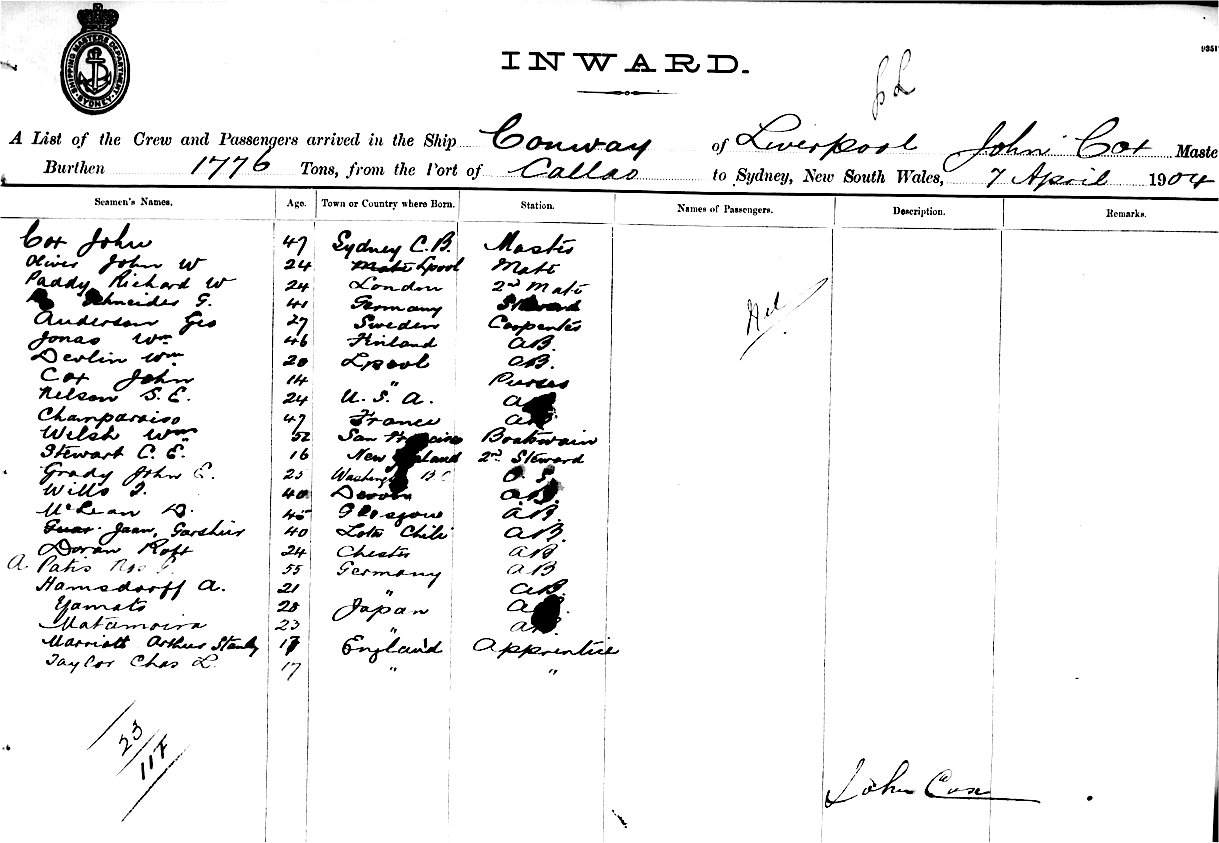 SHIPPING MASTERS DEPARTMENT SYDNEY
INWARD.
A List of the Crew and Passengers arrived in the Ship Conway of Liverpool John Cox Maste
Burthen 1776 Tons, from the Port of Callao to Sydney, New South Wales, 7 April 1904
Seamen's Names. Age. Town or Country where Born. Station. Names of Passengers. Description. Remarks.
Cox John 47 Sydney C.B. Master
Oliver John W 24 Lpool Mate
Paddy Richard W 24 London 2nd Mate
Schneider G. 41 Germany Steward
Anderson Geo 27 Sweden Carpenter
Nil
Jonas Wm 46 Finland AB.
Devlin Wm 20 Lpool AB.
Cox John 14 " Purser
Nelson S. E. 24 U. S. A.
Champaraiso 47 France
Welsh Wm 52 San Boatswain
Stewart C. E. 16 New 2nd Steward
Grady John E. 25 O. S.
Wills J. 40 Devon AB.
McLean D. 45 Glasgow AB.
Juan, 40 Lota Chili AB.
Doran Robt 24 Chester AB
A. 55 Germany AB
Hamsdorff A. 21 " AB.
Yamato 28 Japan
Matamoira 23 "
Marriott Arthur Stanley 17 England Apprentice
Taylor Chas L. 17 " "
23
117
John Cox